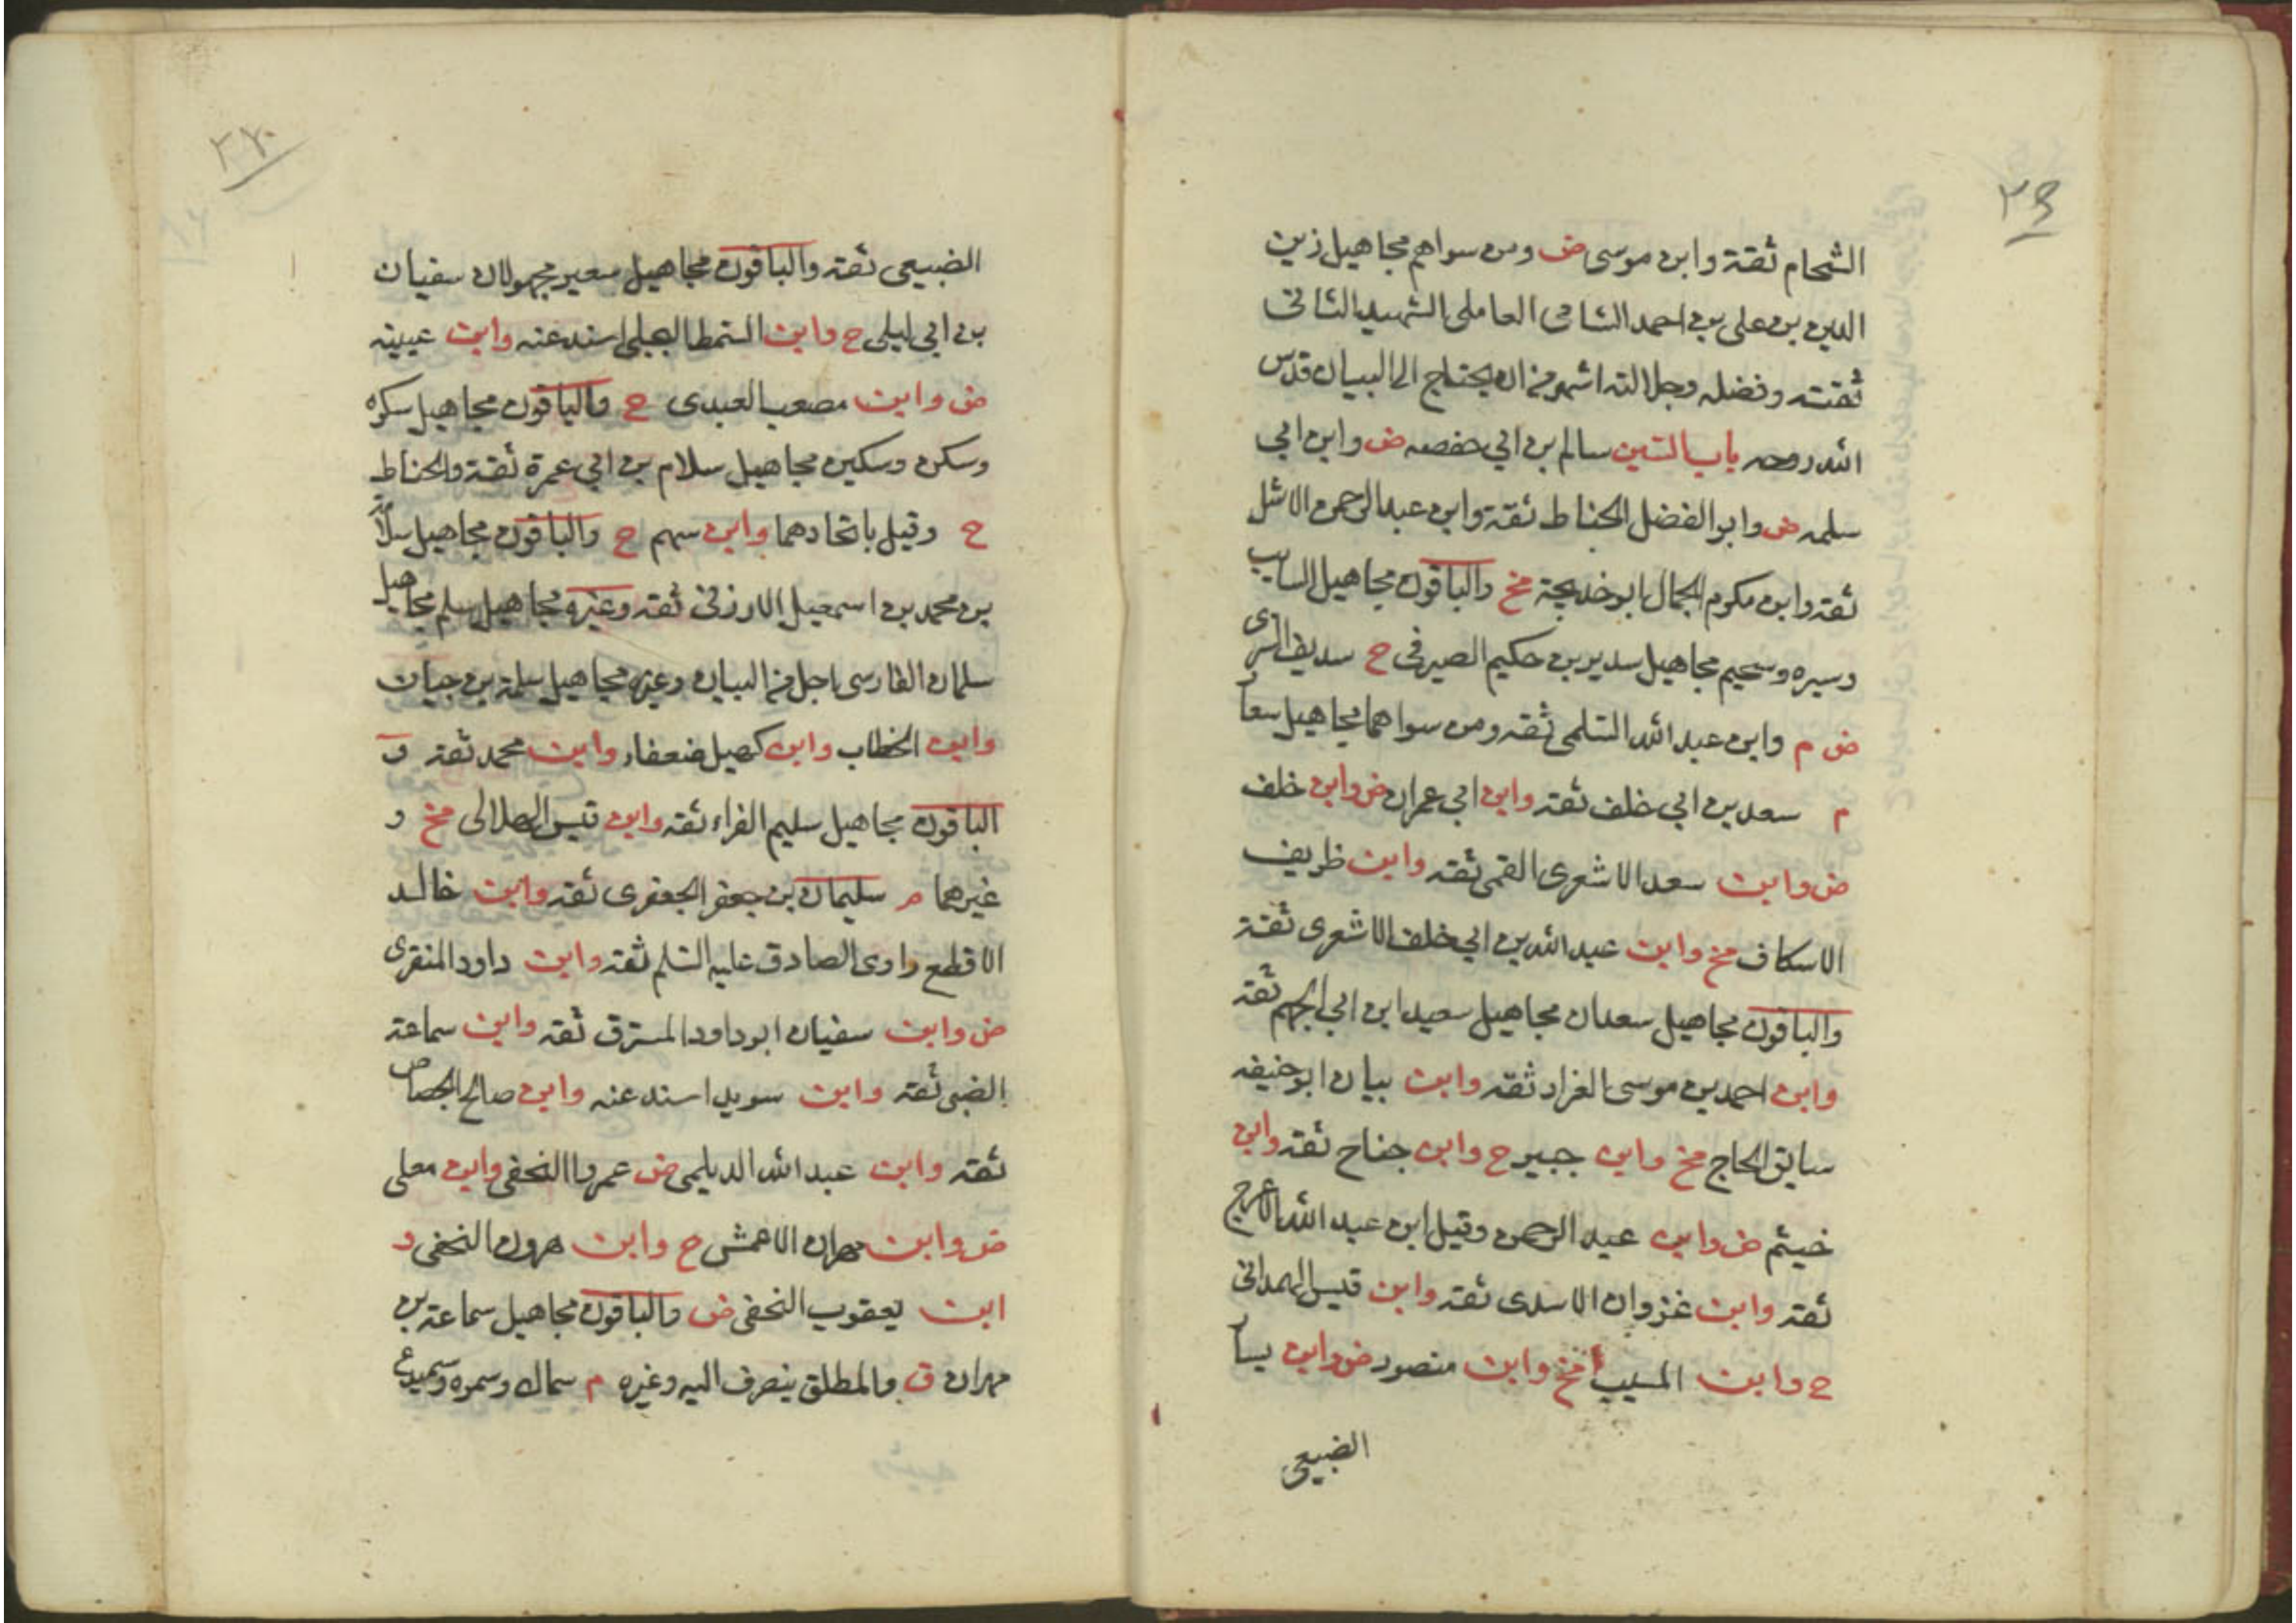 ٣٦
الشحام ثقة وابن موسى ض ومن سواهم مجاهيل زين
الدين بن علي بن احمد الشامي العاملي الشهيد الثاني
ثقته وفضله وجلالته اشهر من ان يحتاج الى البيان قدس
الله روحه باب السين سالم بن ابي حفصه ض وابن ابي
سلمه ض وابو الفضل الحناط ثقة وابن عبد الرحمن الاشل
ثقة وابن مكرم الجمال ابو خديجة مخ والباقون مجاهيل السايب
وسبره وسحيم مجاهيل سدير بن حكيم الصيرفي ح سديف السرى
ض م وابن عبد الله السلمي ثقه ومن سواهما مجاهيل سعا
م سعد بن ابي خلف ثقه وابن ابي عمران ض وابن خلف
ض وابن سعد الاشعرى القمي ثقه وابن ظريف
الاسكاف مخ وابن عبد الله بن ابي خلف الاشعرى ثقة
والباقون مجاهيل سعدان مجاهيل سعيد ابن ابي الجهم ثقه
وابن احمد بن موسى الغراد ثقه وابن بيان ابو حنيفه
سايق الحاج مخ وابن جبير ح وابن جناح ثقه وابن
خيثم ض وابن عبد الرحمن وقيل ابن عبد الله الاعرج
ثقه وابن غزوان الاسدى ثقه وابن قيس الهمداني
ح وابن المسيب مخ وابن منصور ض وابن يسا
الضبيعي
الضبيعي ثقه والباقون مجاهيل سعير مجهولان سفيان
بن ابي ليلى ح وابن السمط البجلي اسند عنه وابن عيينه
ض وابن مصعب العبدى ح والباقون مجاهيل سكره
وسكن وسكين مجاهيل سلام بن ابي عمرة ثقة والحناط
ح وقيل باتحادهما وابن سهم ح والباقون مجاهيل سلامه
بن محمد بن اسمعيل الارزني ثقه وغيره مجاهيل سلم مجاهيل
سلمان الفارسى اجل من البيان وغيره مجاهيل سلمة بن حيان
وابن الخطاب وابن كهيل ضعفاء وابن محمد ثقه و
الباقون مجاهيل سليم الفراء ثقه وابن قيس الهلالى مخ و
غيرهما م سليمان بن جعفر الجعفرى ثقه وابن خالد
الاقطع راوى الصادق عليه السلم ثقه وابن داود المنقرى
ض وابن سفيان ابو داود المسترق ثقه وابن سماعة
الضبي ثقه وابن سويد اسند عنه وابن صالح الجصاص
ثقه وابن عبد الله الديلمى ض عمروا النخعى وابن معلى
ض وابن مهران الاعمش ح وابن هرون النخعى و
ابن يعقوب النخعى ض والباقون مجاهيل سماعة بن
مهران ق والمطلق ينصرف اليه وغيره م سماك وسمره وسميدع